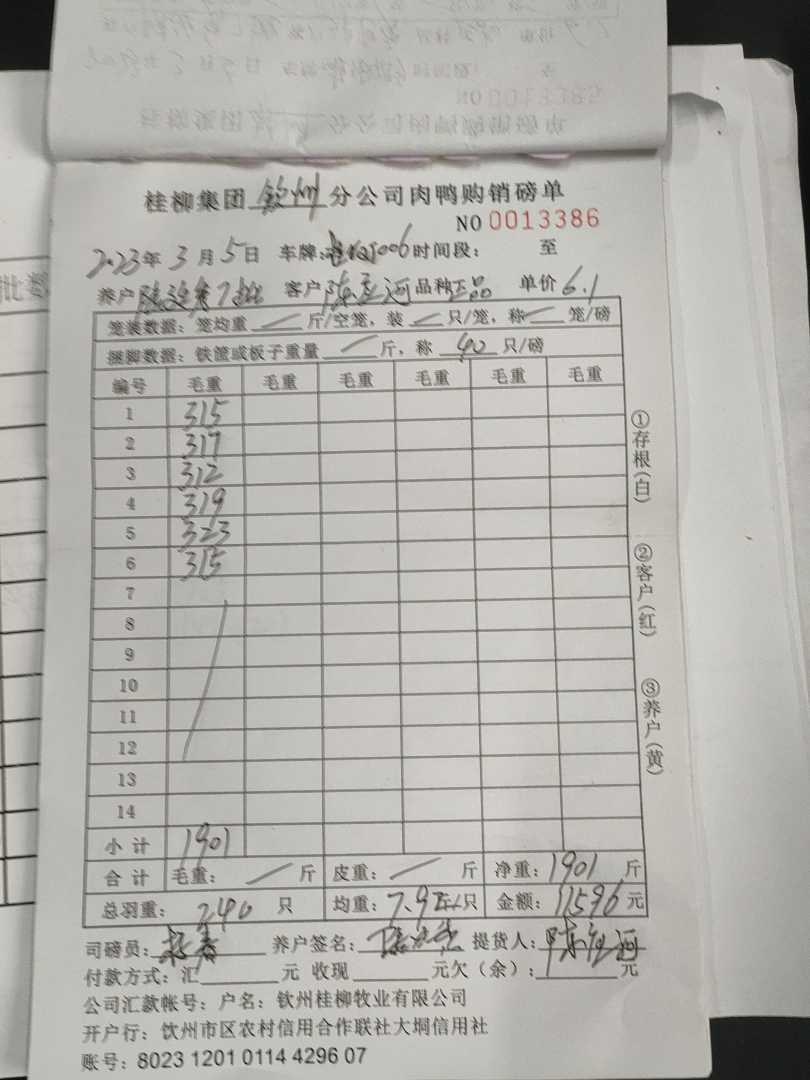 桂柳集团 钦州 分公司肉鸭购销磅单
NO 0013386
2023年 3 月 5 日 车牌: 时间段: 至
养户 7批 客户 陈 河 品种 正品 单价 6.1
笼装数据: 笼均重 / 斤/空笼, 装 / 只/笼, 称 / 笼/磅
捆脚数据: 铁筐或板子重量 / 斤, 称 40 只/磅
编号 毛重 毛重 毛重 毛重 毛重 毛重
1 315
2 317
3 312
4 319
5 323
6 315
7
8
9
10
11
12
13
14
小计 1901
合计 毛重: / 斤 皮重: / 斤 净重: 1901 斤
总羽重: 240 只 均重: 7.92斤/只 金额: 11596 元
司磅员: 养户签名: 提货人: 陈 河
付款方式: 汇 元 收现 元欠(余): 元
公司汇款帐号: 户名: 钦州桂柳牧业有限公司
开户行: 钦州市区农村信用合作联社大垌信用社
账号: 8023 1201 0114 4296 07
①存根(白)
②客户(红)
③养户(黄)
批数